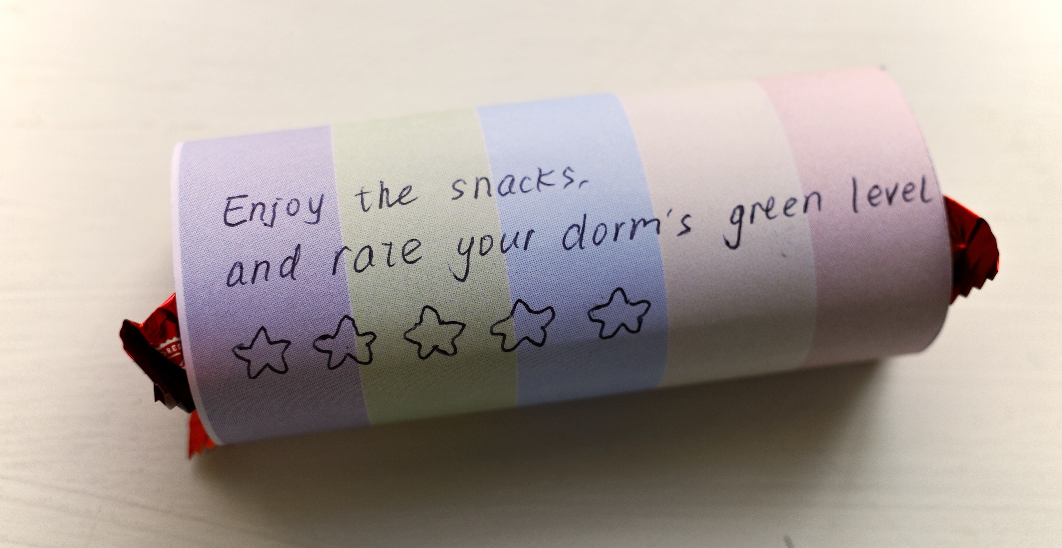 Enjoy the snacks.
and rate your dorm's green level